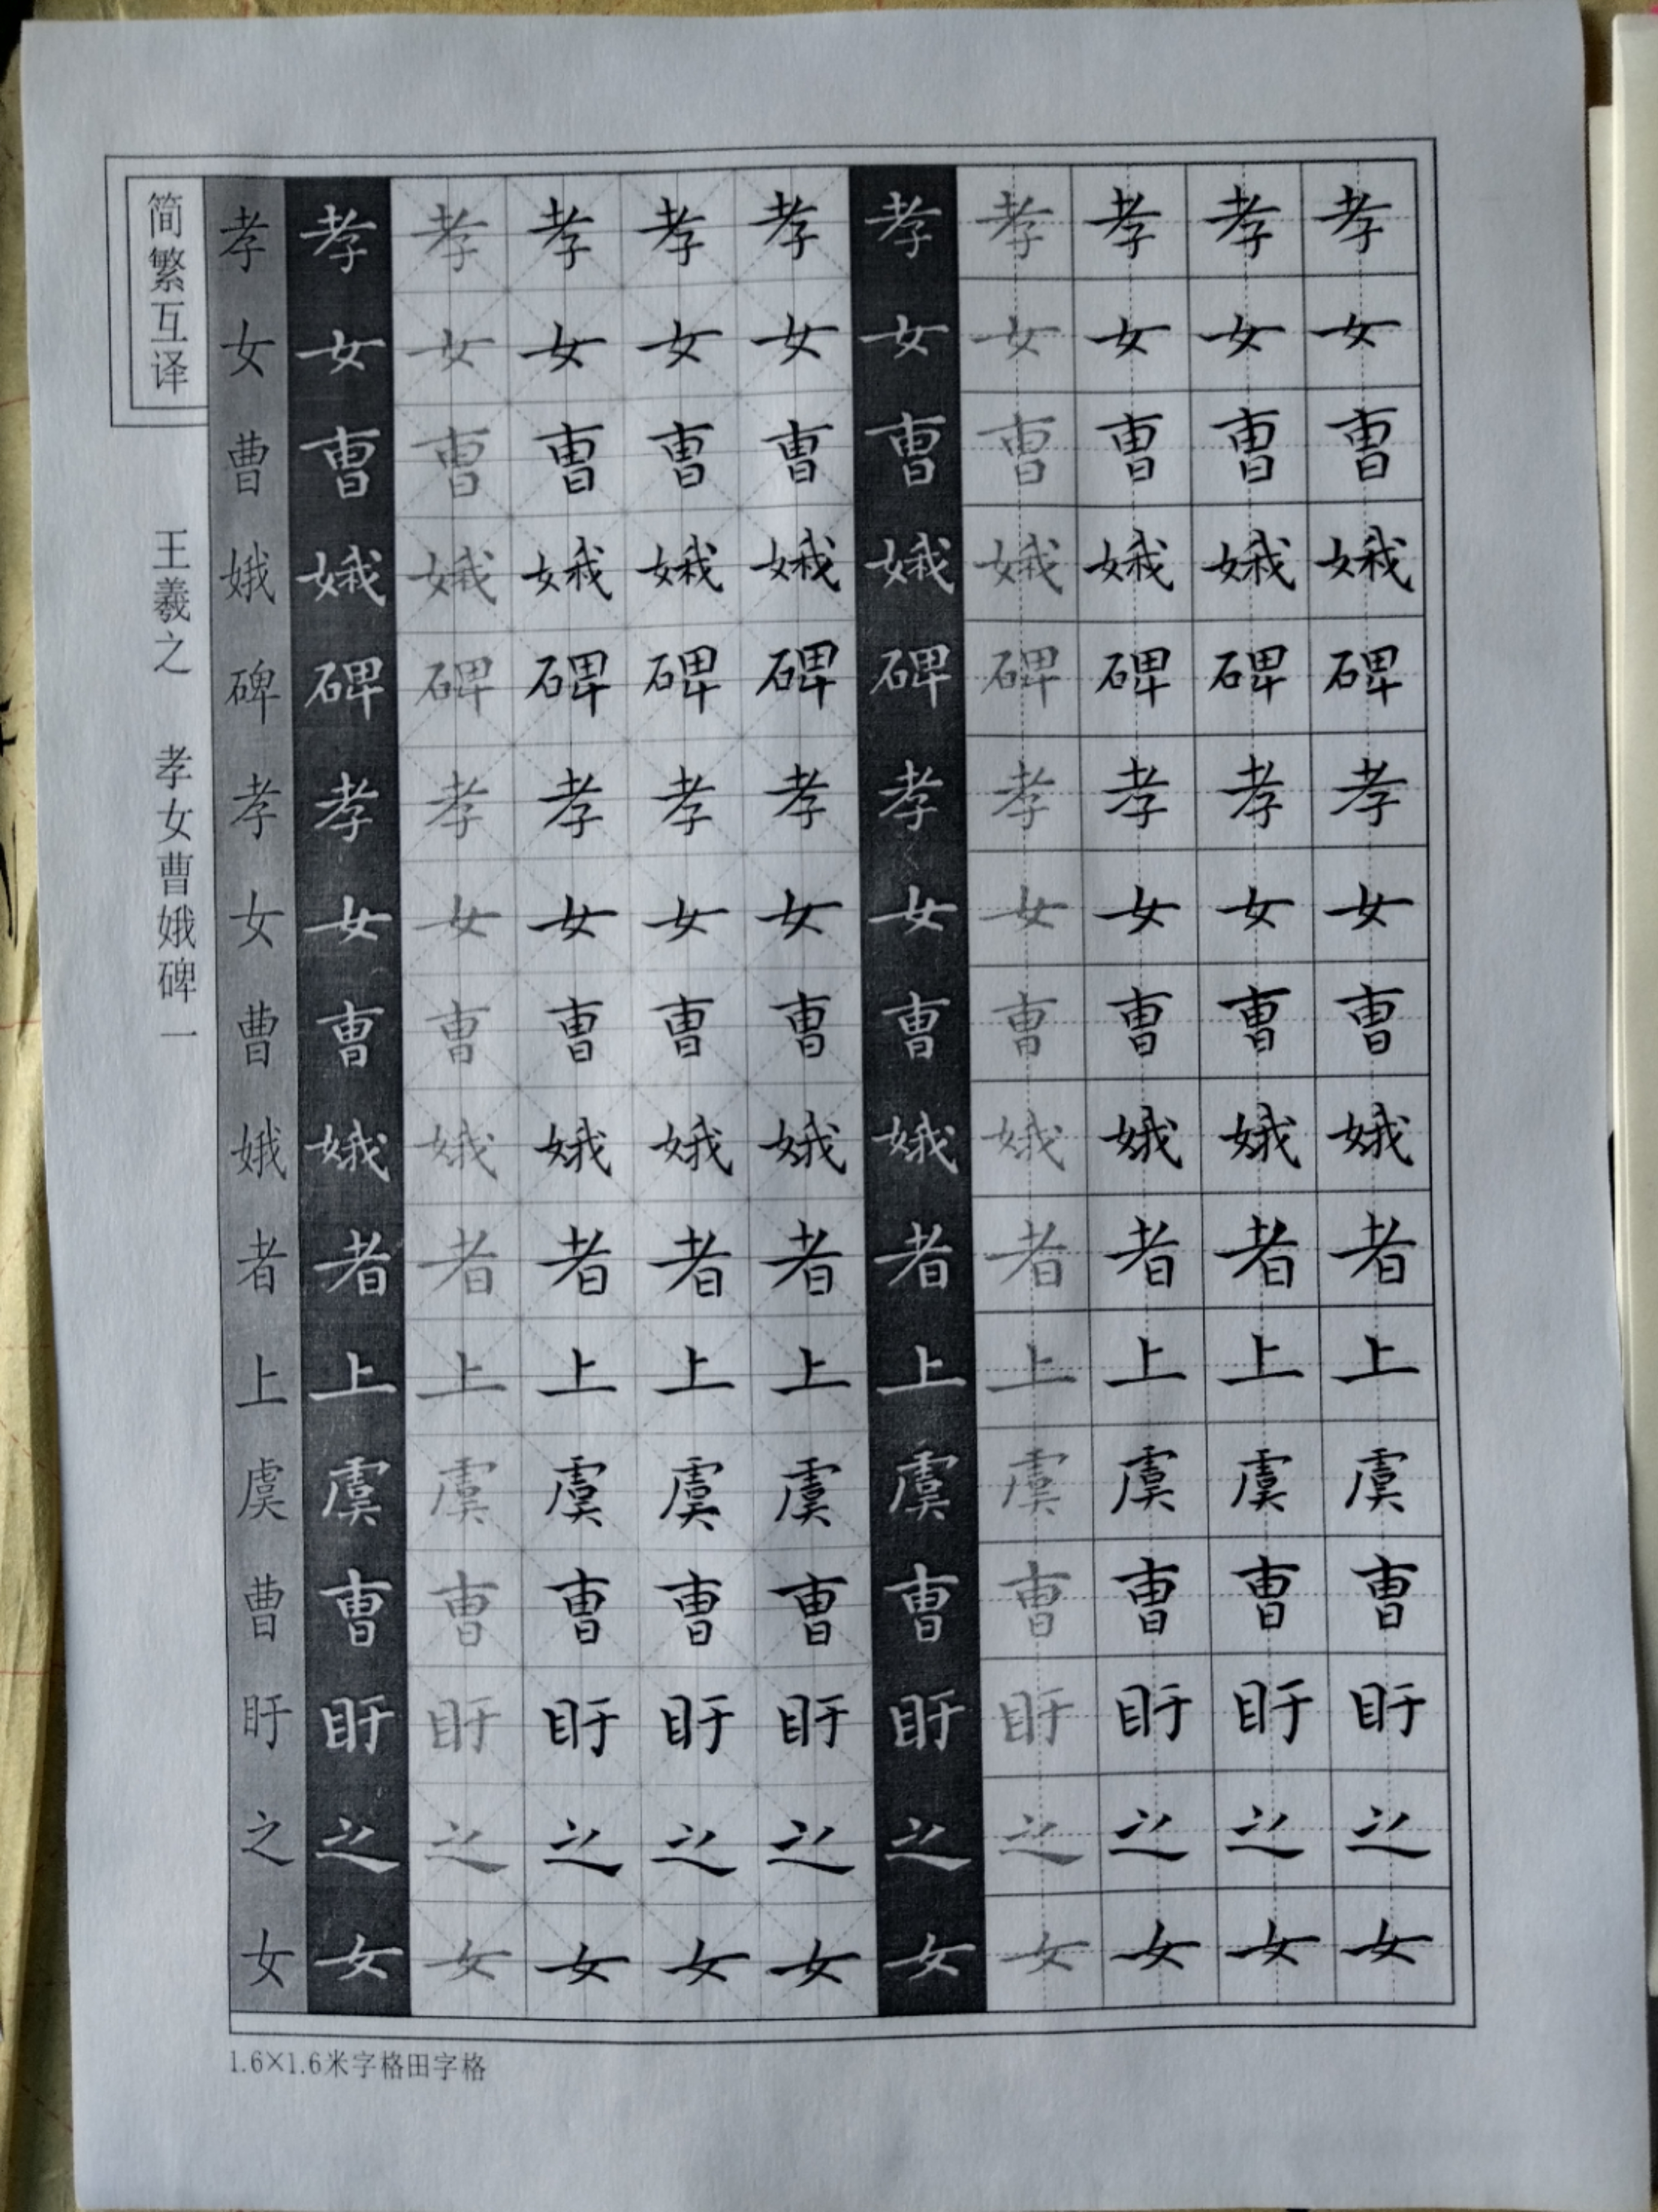 简繁互译
王羲之 孝女曹娥碑一
孝女曹娥碑孝女曹娥者上虞曹盱之女
孝女曺娥碑孝女曺娥者上虞曺盱之女
孝女曺娥碑孝女曺娥者上虞曺盱之女
孝女曺娥碑孝女曺娥者上虞曺盱之女
孝女曺娥碑孝女曺娥者上虞曺盱之女
孝女曺娥碑孝女曺娥者上虞曺盱之女
孝女曺娥碑孝女曺娥者上虞曺盱之女
孝女曺娥碑孝女曺娥者上虞曺盱之女
孝女曺娥碑孝女曺娥者上虞曺盱之女
孝女曺娥碑孝女曺娥者上虞曺盱之女
孝女曺娥碑孝女曺娥者上虞曺盱之女
1.6×1.6米字格田字格